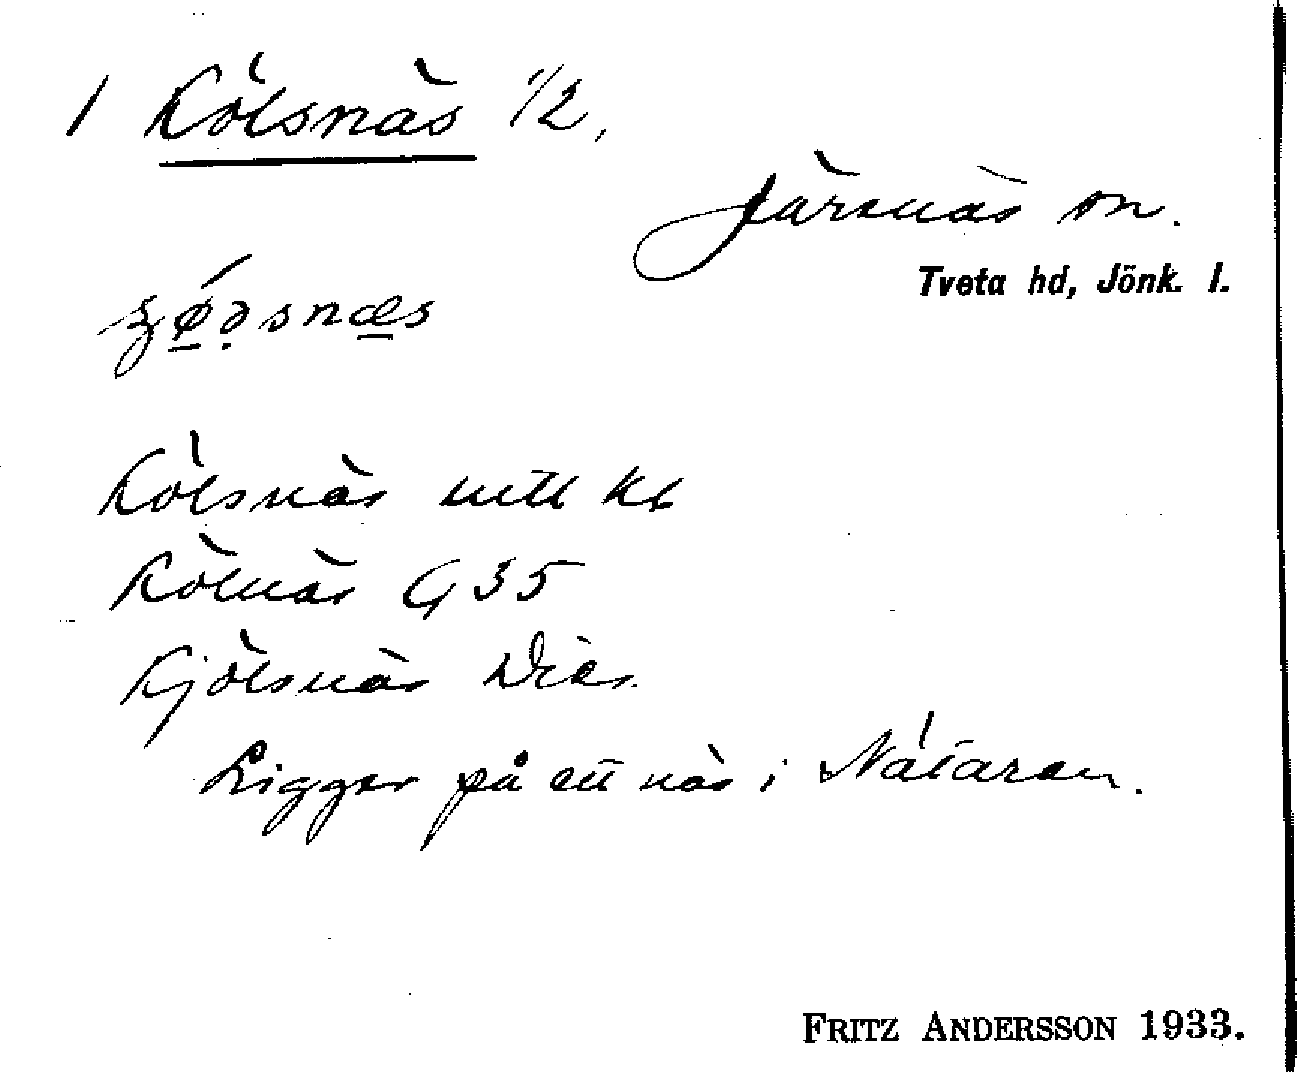 1 Kölsnäs 1/2,
Järsnäs sn.
Tveta hd, Jönk. l.
Kölsnäs uttt kb
Kölnäs G 35
Kjölsnäs Dics.
Ligger på ett näs i Nätaren.
FRITZ ANDERSSON 1933.